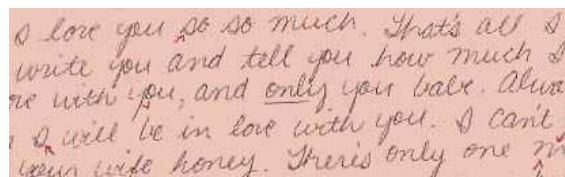 I love you so so much. That's all I
write you and tell you how much I
with you, and only you babe.
I will be in love with you. I can't
your wife honey. There's only one